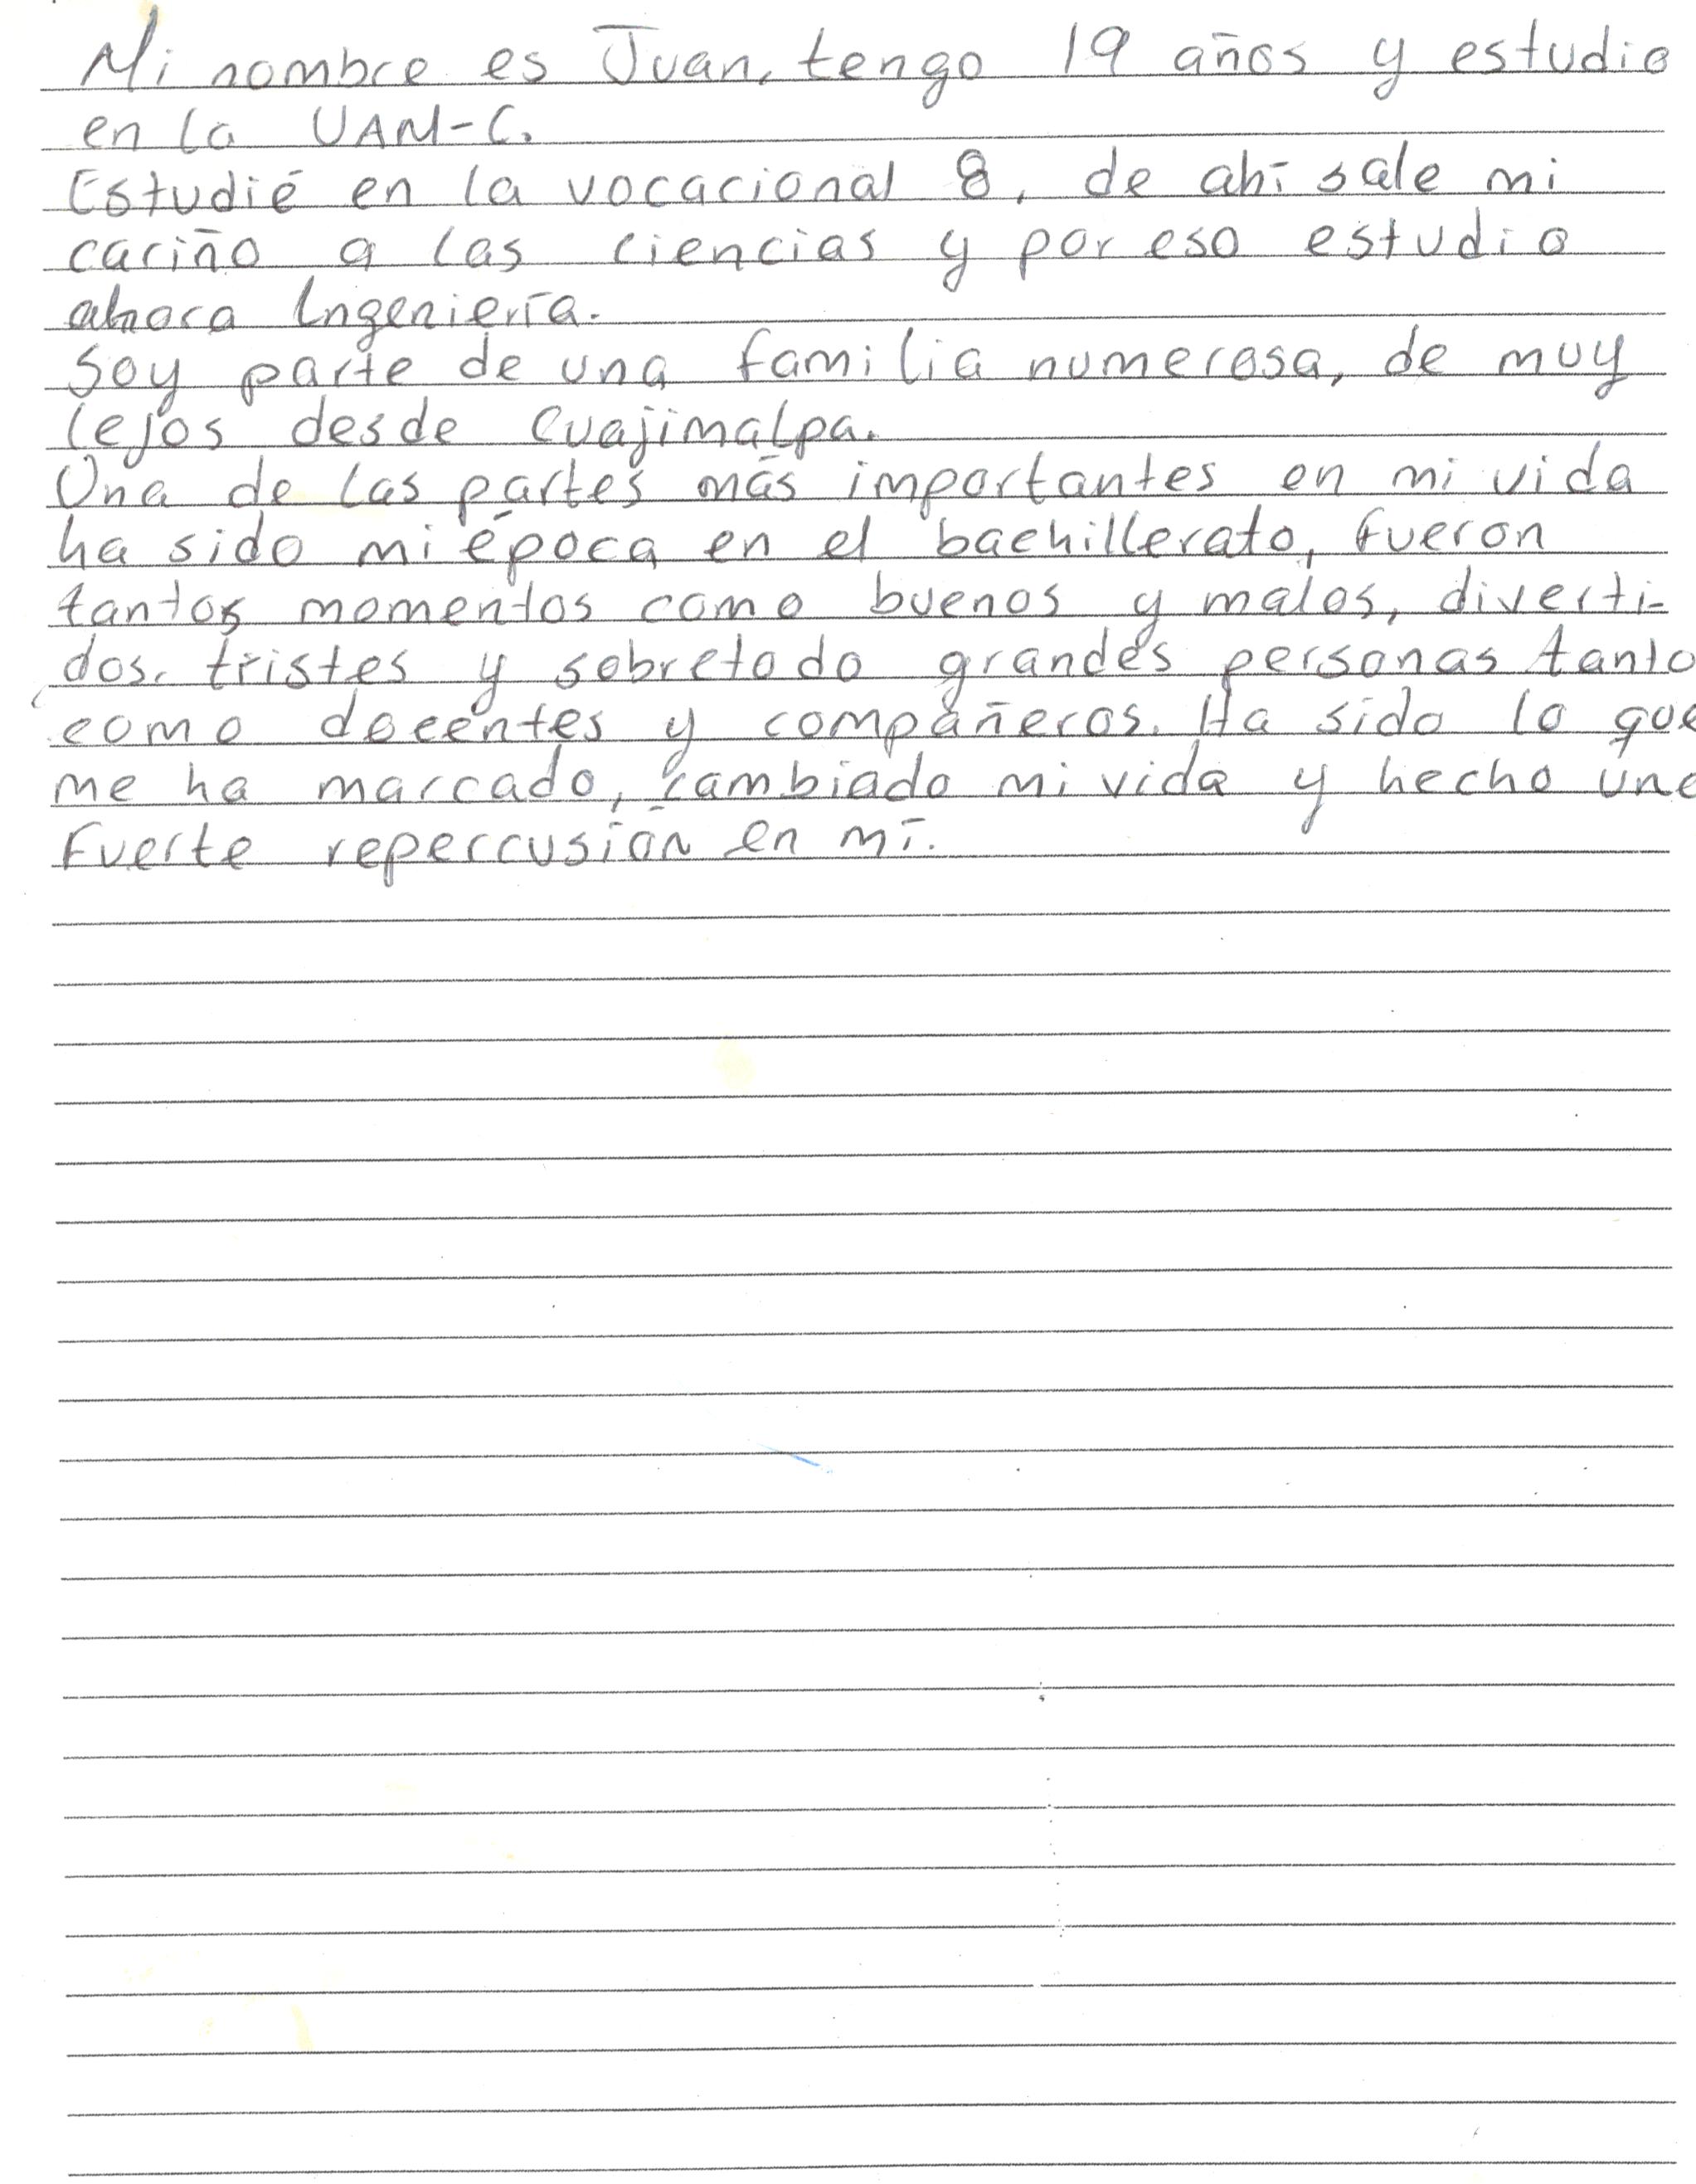 Mi nombre es Juan, tengo 19 años y estudio
en la UAM-C.
Estudié en la vocacional 8, de ahí sale mi
cariño a las ciencias y por eso estudio
ahora Ingeniería.
Soy parte de una familia numerosa, de muy
lejos desde Cuajimalpa.
Una de las partes más importantes en mi vida
ha sido mi época en el bachillerato, fueron
tantos momentos como buenos y malos, diverti-
dos, tristes y sobretodo grandes personas tanto
como docentes y compañeros. Ha sido lo que
me ha marcado, cambiado mi vida y hecho una
fuerte repercusión en mí.